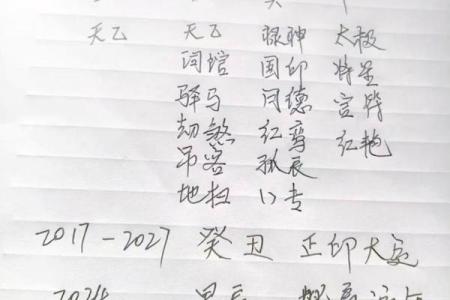 天乙 天乙 禄神 太极
词馆 国印 将星
驿马 月德 宫牌
劫煞 红鸾 红艳
吊客 孤辰
地扫 八专
2017-2027 癸丑 正印大运
2024